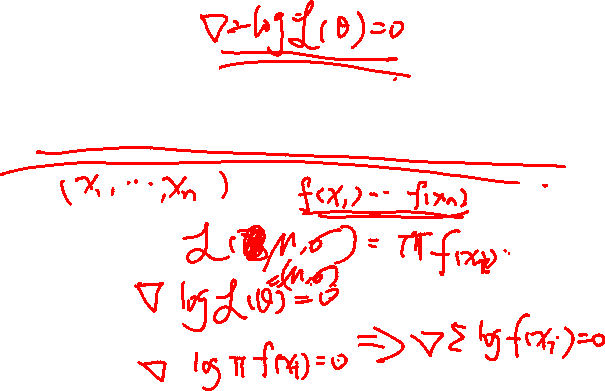 ∇ - log L(θ) = 0
(x₁, ..., xₙ) f(x₁) ... f(xₙ)
L(μ, σ) = π f(xᵢ)
∇ log L(θ) = 0 = (μ, σ)
∇ log π f(xᵢ) = 0 ⇒ ∇ Σ log f(xᵢ) = 0